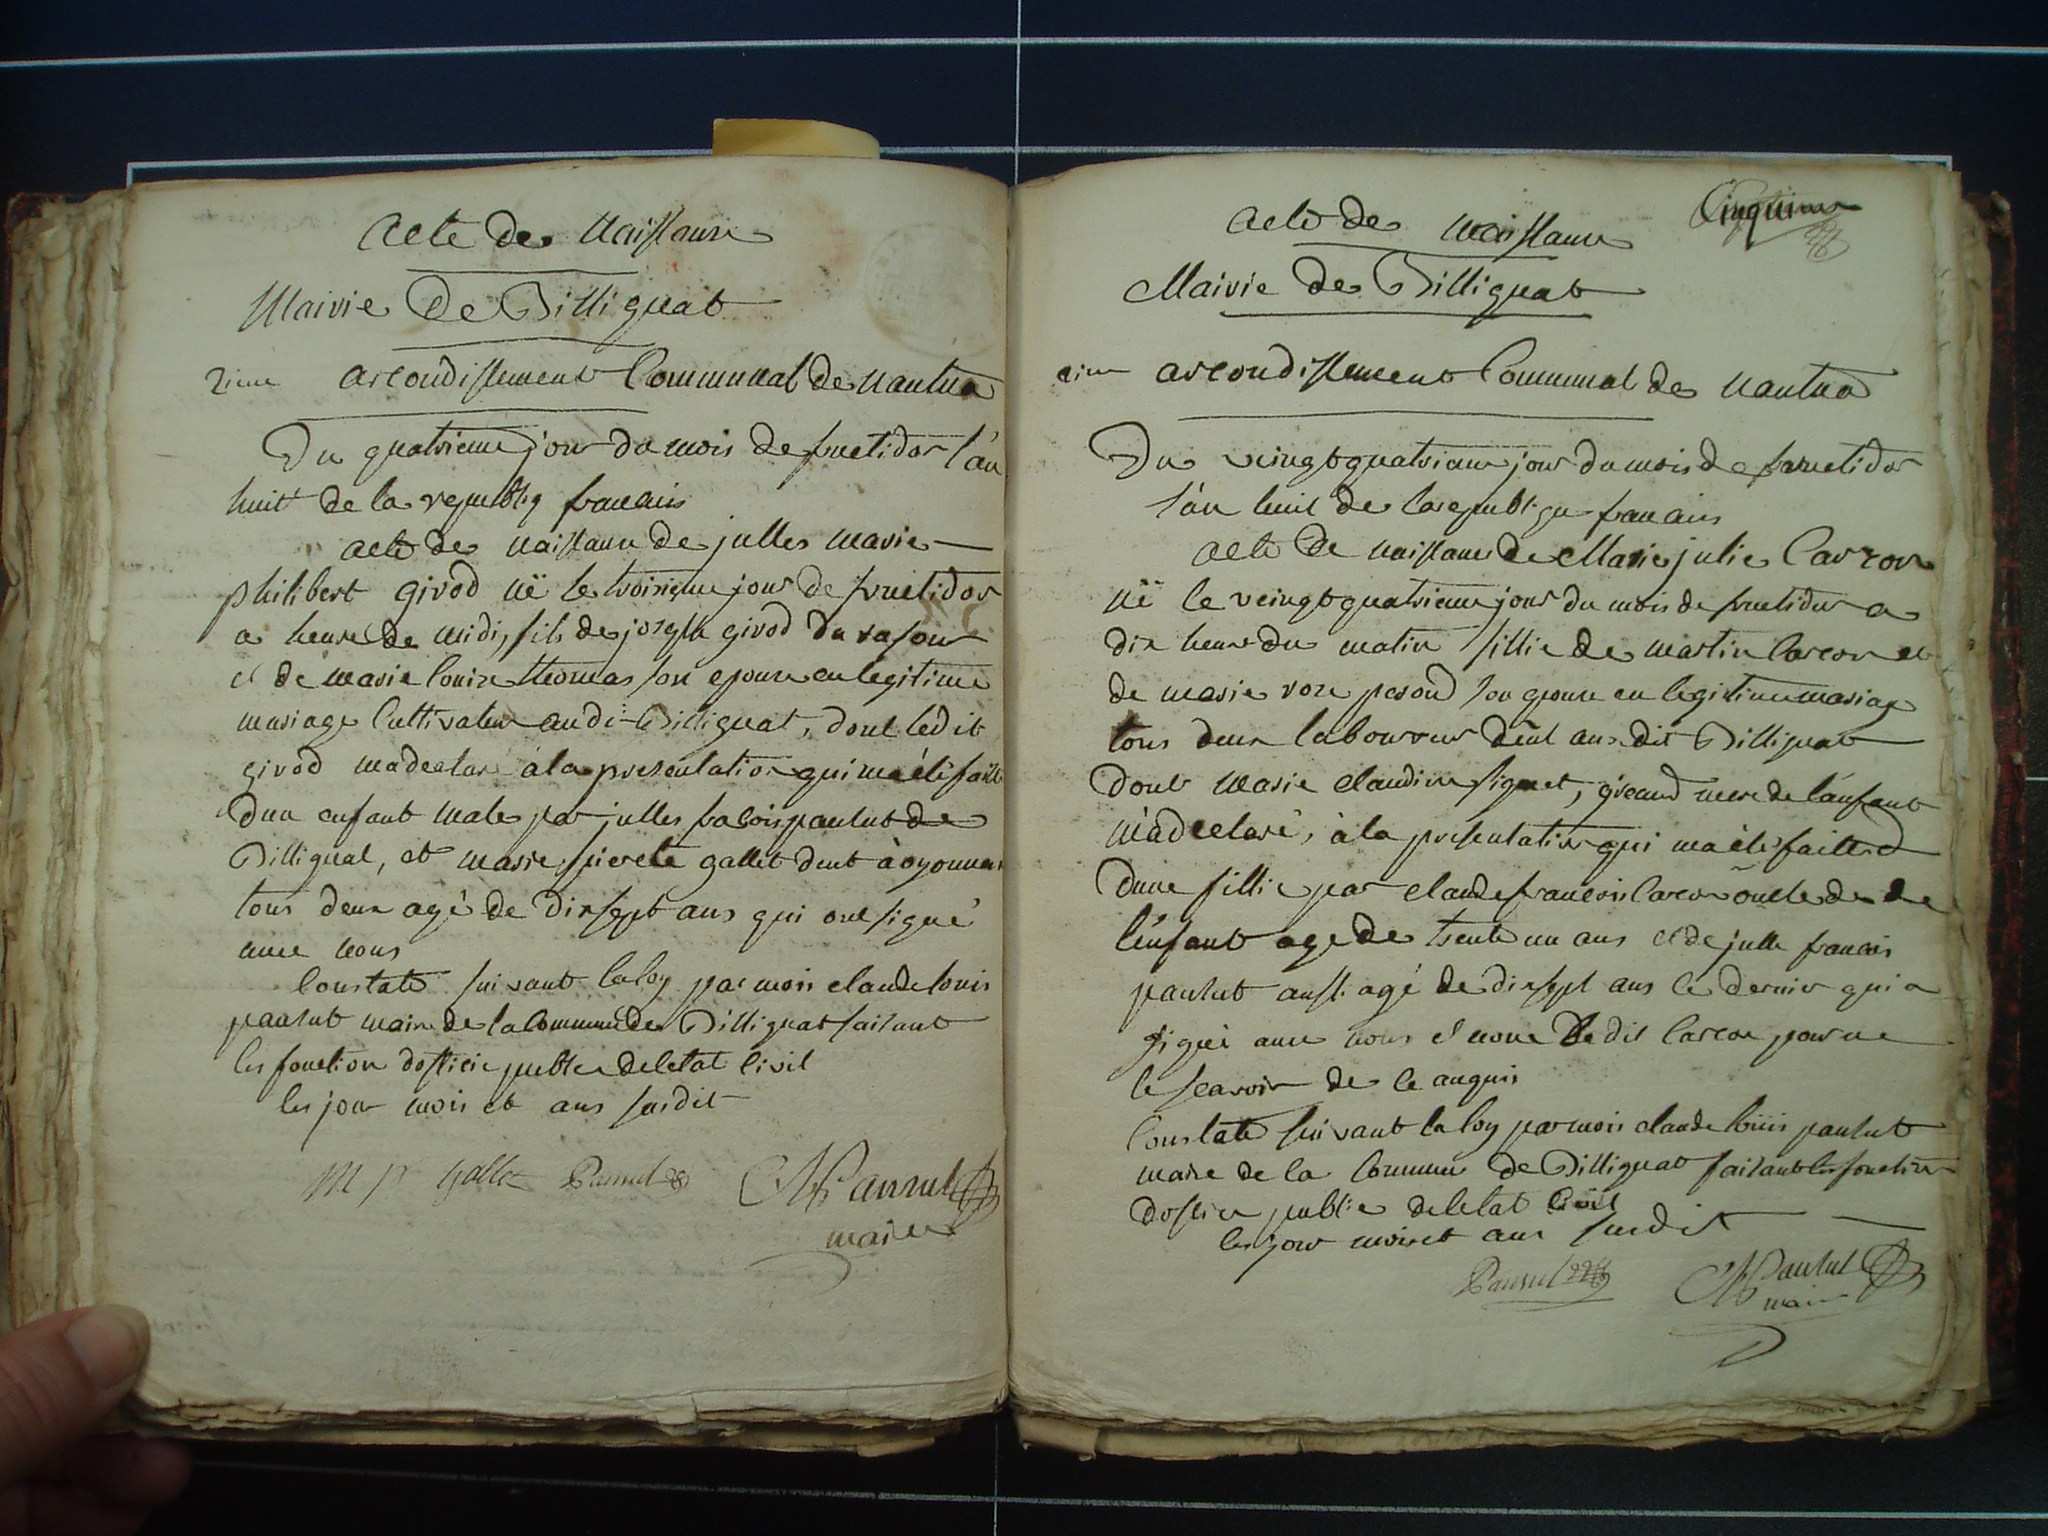 acte de Naissance
Mairie De Billiguat
2ieme arcondissement Communal de Nantua
Du quatrieme jour du mois de fructidor l'an
huit de la republiq francais
acte de naissance de julles marie
philibert girod në le troisieme jour de fructidor
a heure de midi, fils de joseph girod du
et de marie louise thomas son epouse en legitime
mariage Cultivateur audi Billiguat, dont ledit
girod madeclare à la presentation qui ma été faite
dun enfant male par julles facois pansut de
Billiguat, et marie pierete gallet deut à oyonnax
tous deux agé de dixsept ans qui ont signé
avec nous
Constaté suivant laloy par mois claude louis
pansut maire de la Commune de Billiguat faisant
les fonction dofficie public deletat civil
les jour mois et ans susdit
m p gallet Pansut Pansut
maire
Cinquieme
acte de naissance
Mairie de Billiguat
2ieme arcondissement Communal de Nantua
Du veingtquatrieme jour du mois de fructidor
l'an huit de la republique francais
acte de naissance de Marie julie Carron
në le veingtquatrieme jour du mois de fructidor a
dix heure du matin fillie de martin Carron et
de marie rose son epouse en legitime mariage
tous deux laboureur ans dit Billiguat
dont Marie claudine signet, greand mere de l'enfant
m'adeclaré, à la presentation qui ma été faitte
dune fillie par claude francois Carron oncle de de
l'enfant age de trente un ans et de julle francois
pansut aussi agé de dixsept ans ce dernier qui a
signé avec nous et none le dit Carron pour ne
le scavoir de ce anquis
Constaté suivant la loy par mois claude louis pansut
maire de la Commune de Billiguat faisant les fonction
doficie public deletat Civil
les jour mois et ans susdit
Pansut Pansut
maire